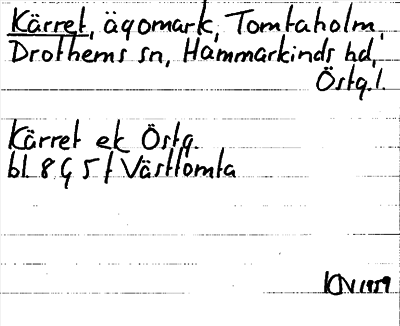 Kärret, ägomark, Tomtaholm,
Drothems sn, Hammarkinds hd,
Östg.l.
Kärret ek Östg.
bl 8 G 5 f Västtomta
KN 1959